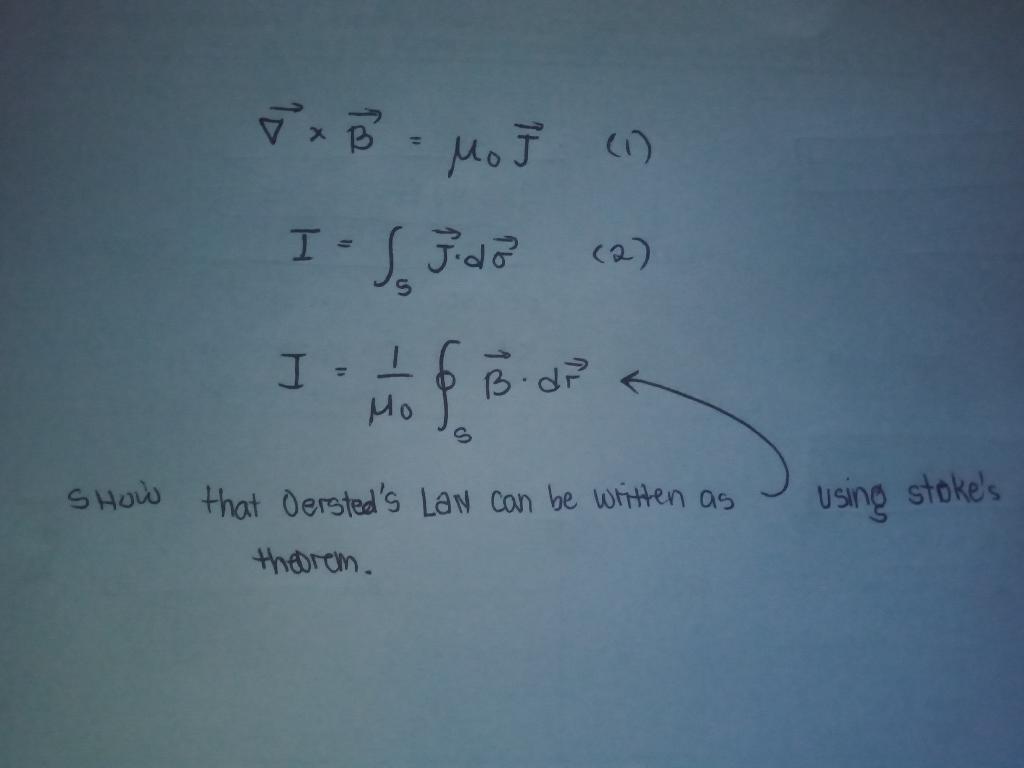 ∇⃗ × B⃗ = μ₀ J⃗ (1)
I = ∫ₛ J⃗·dσ⃗ (2)
I = 1/μ₀ ∮ₛ B⃗·dr⃗
SHOW that Oersted's LAW can be written as using stoke's
theorem.